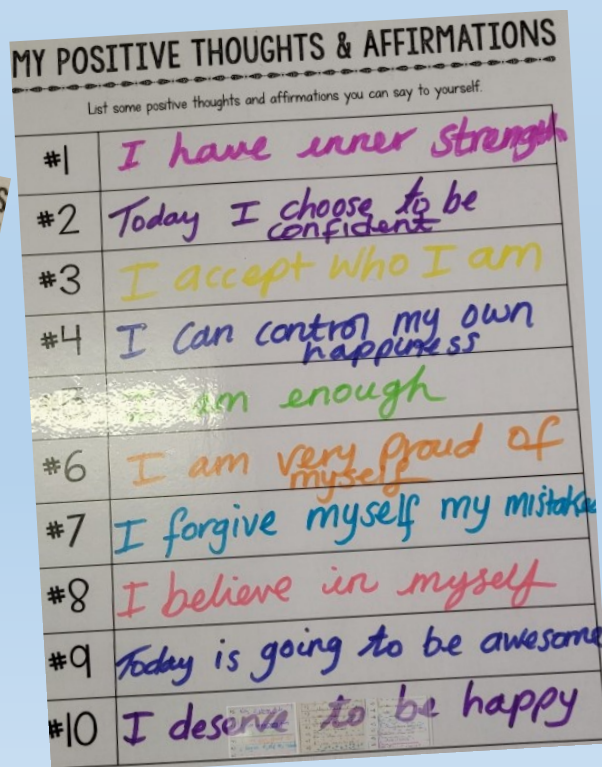 MY POSITIVE THOUGHTS & AFFIRMATIONS
List some positive thoughts and affirmations you can say to yourself.
#1 I have inner strength
#2 Today I choose to be
confident
#3 I accept who I am
#4 I can control my own
happiness
I am enough
#6 I am very proud of
myself
#7 I forgive myself my mistakes
#8 I believe in myself
#9 Today is going to be awesome
#10 I deserve to be happy